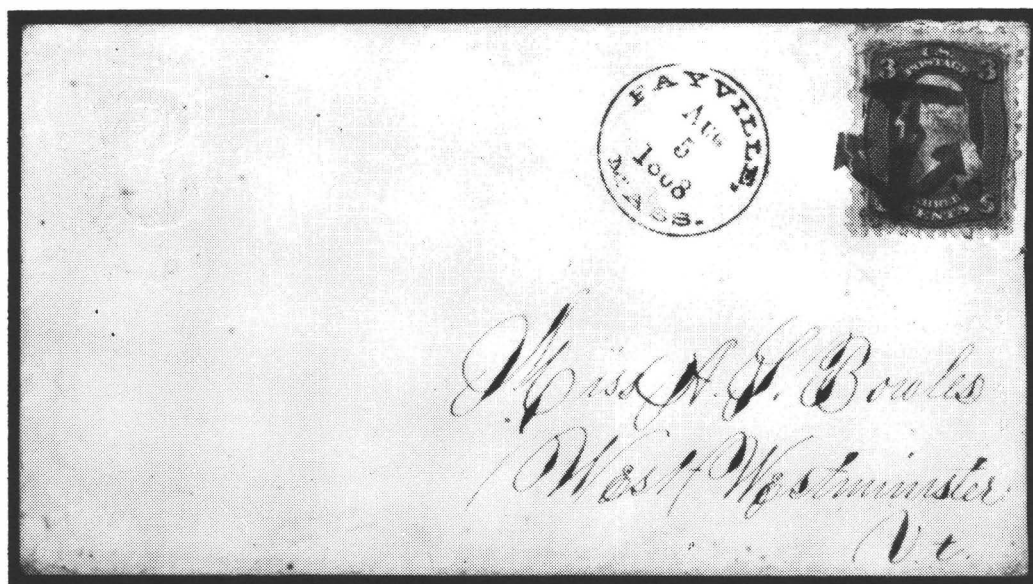 FAYVILLE.
AUG
5
1868
MASS.
U.S.
POSTAGE
3 3
THREE
CENTS
Miss A. S. Bowles
West Westminster
Vt.